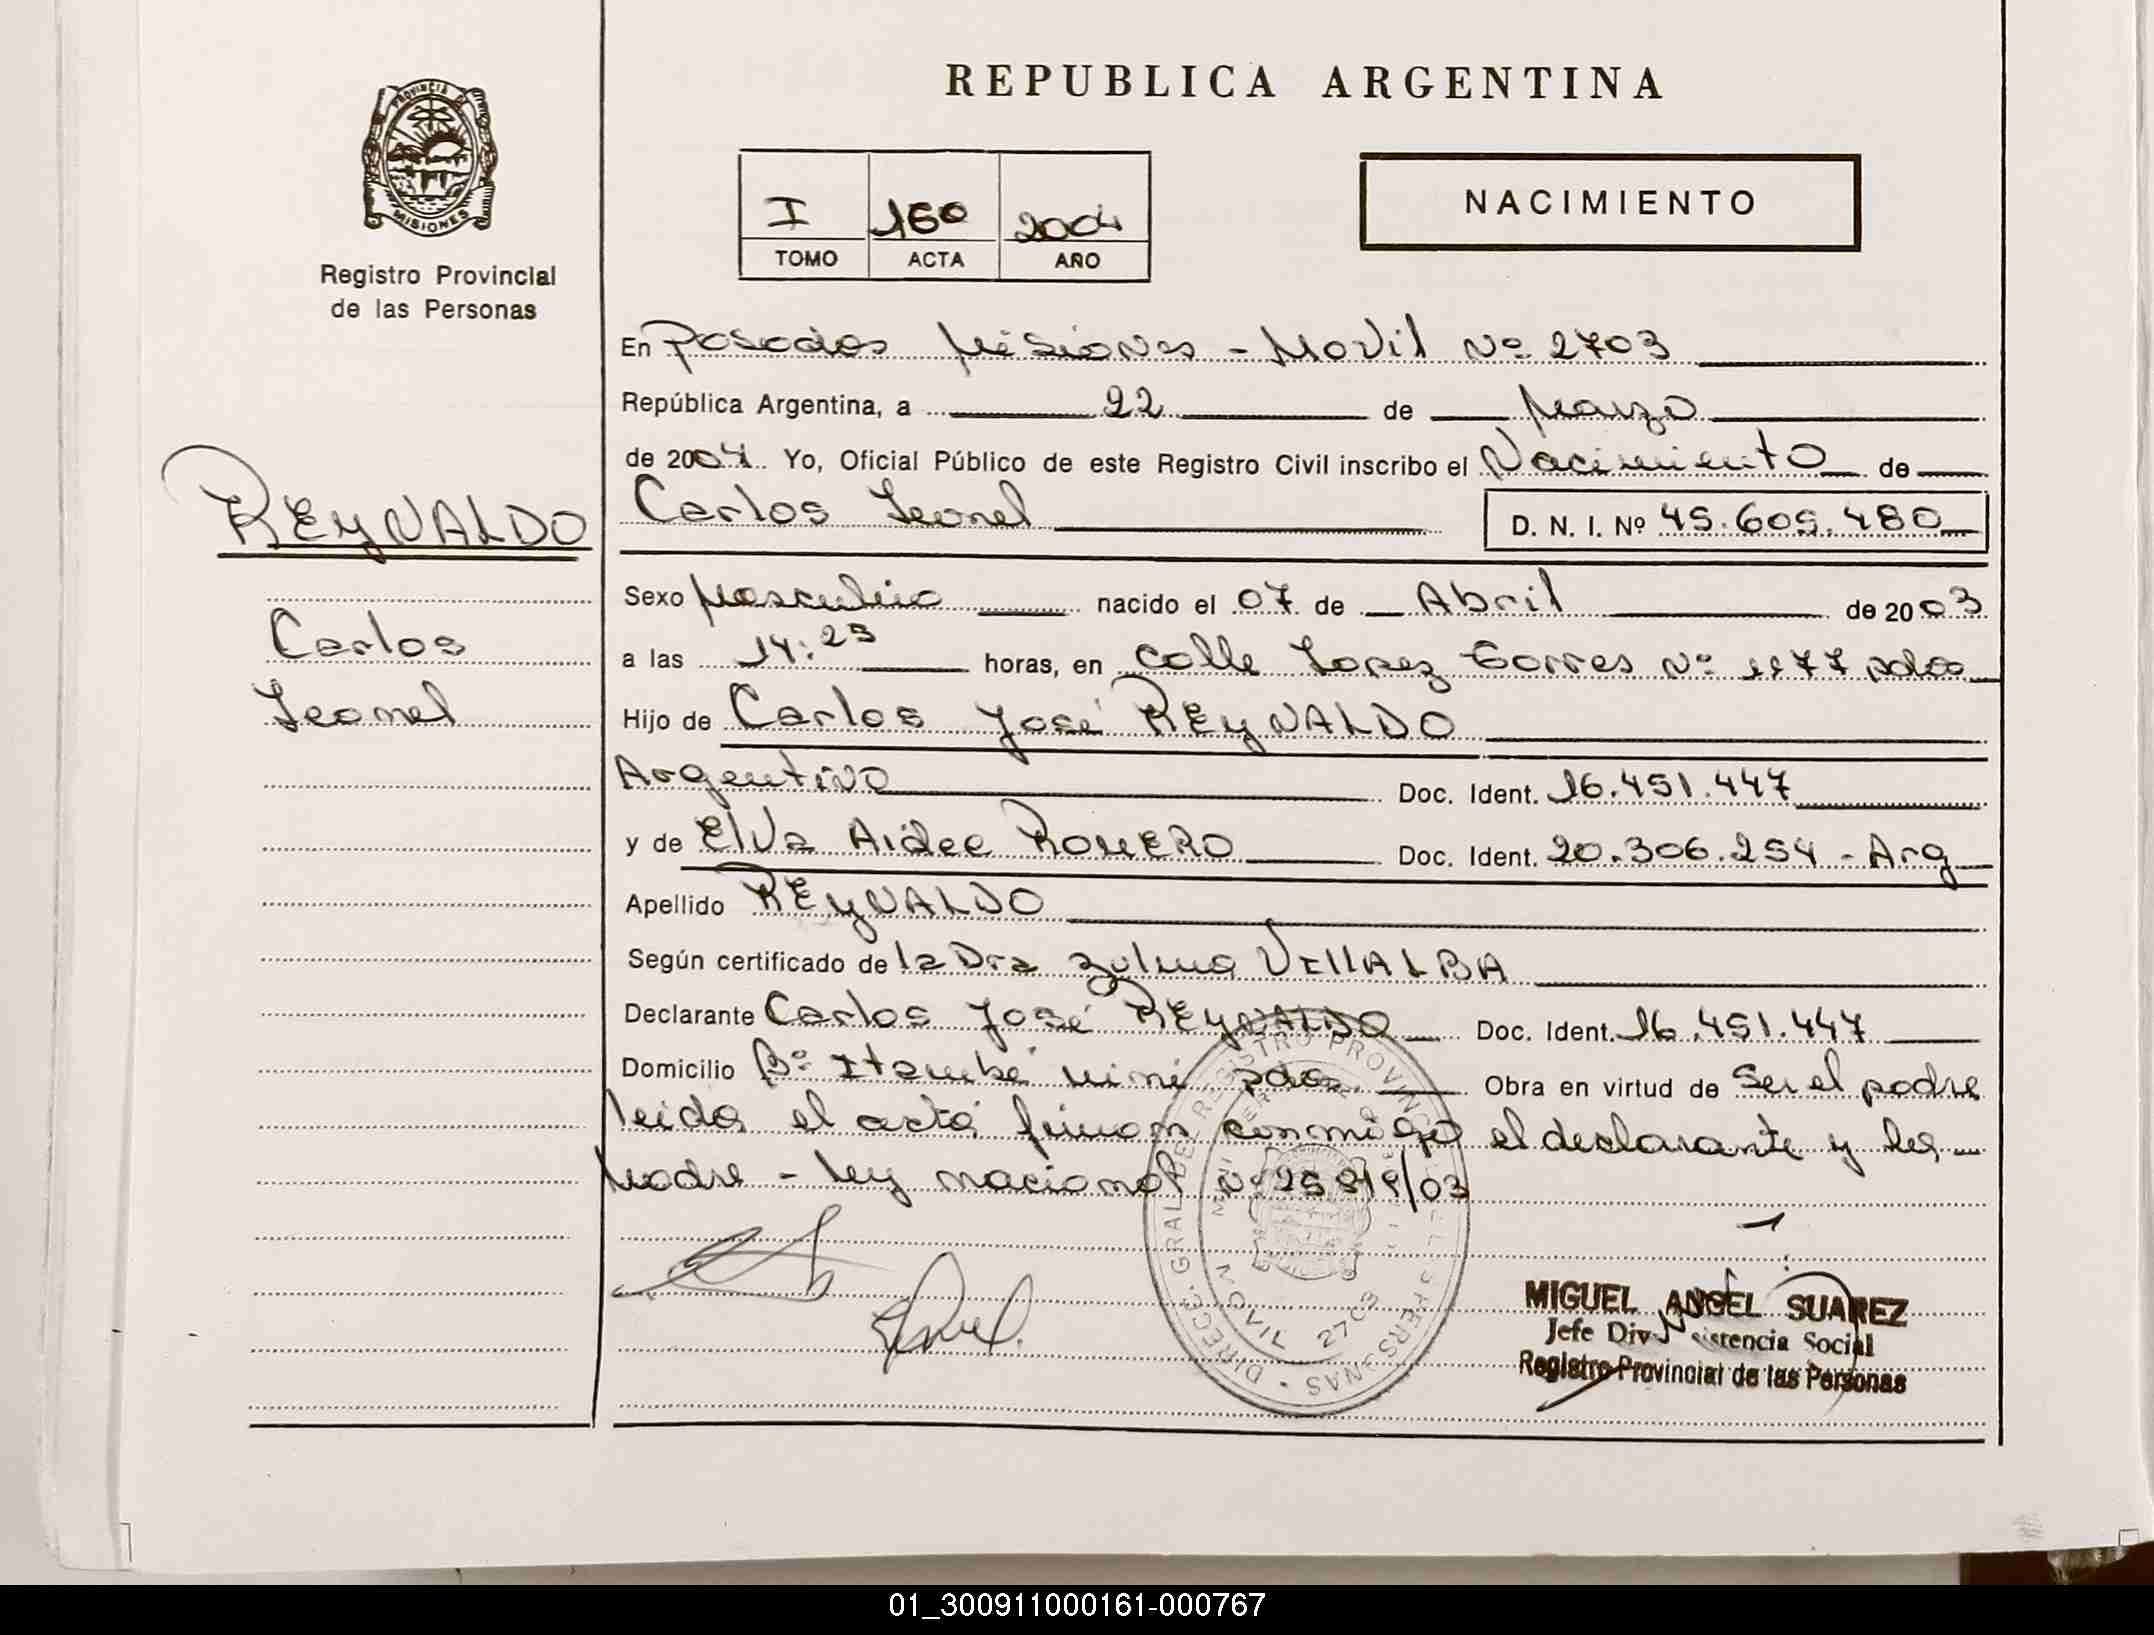 REPUBLICA ARGENTINA
PROVINCIA DE
MISIONES
Registro Provincial
de las Personas
I 160 2004
TOMO ACTA AÑO
NACIMIENTO
En Posadas Misiones - Movil Nº 2703
República Argentina, a 22 de Marzo
de 2004 Yo, Oficial Público de este Registro Civil inscribo el Nacimiento de
Carlos Leonel D. N. I. Nº 45.605.480
REYNALDO
Carlos
Leonel
Sexo Masculino nacido el 07 de Abril de 2003
a las 14:25 horas, en calle Lopez Torres Nº 1177 pdas
Hijo de Carlos José REYNALDO
Argentino Doc. Ident. 16.451.447
y de Elva Aidee ROMERO Doc. Ident. 20.306.254 - Arg
Apellido REYNALDO
Según certificado de la Dra Zulma VILLALBA
Declarante Carlos José REYNALDO Doc. Ident. 16.451.447
Domicilio Bº Itaembé mini pdas Obra en virtud de ser el padre
leida el acta firman conmigo el declarante y la
Madre - ley nacional Nº 25819/03
DIRECC. GRAL. DE REGISTRO PROVINCIAL PERSONAS
MOVIL 2703
MIGUEL ANGEL SUAREZ
Jefe Div. Asistencia Social
Registro Provincial de las Personas
01_300911000161-000767